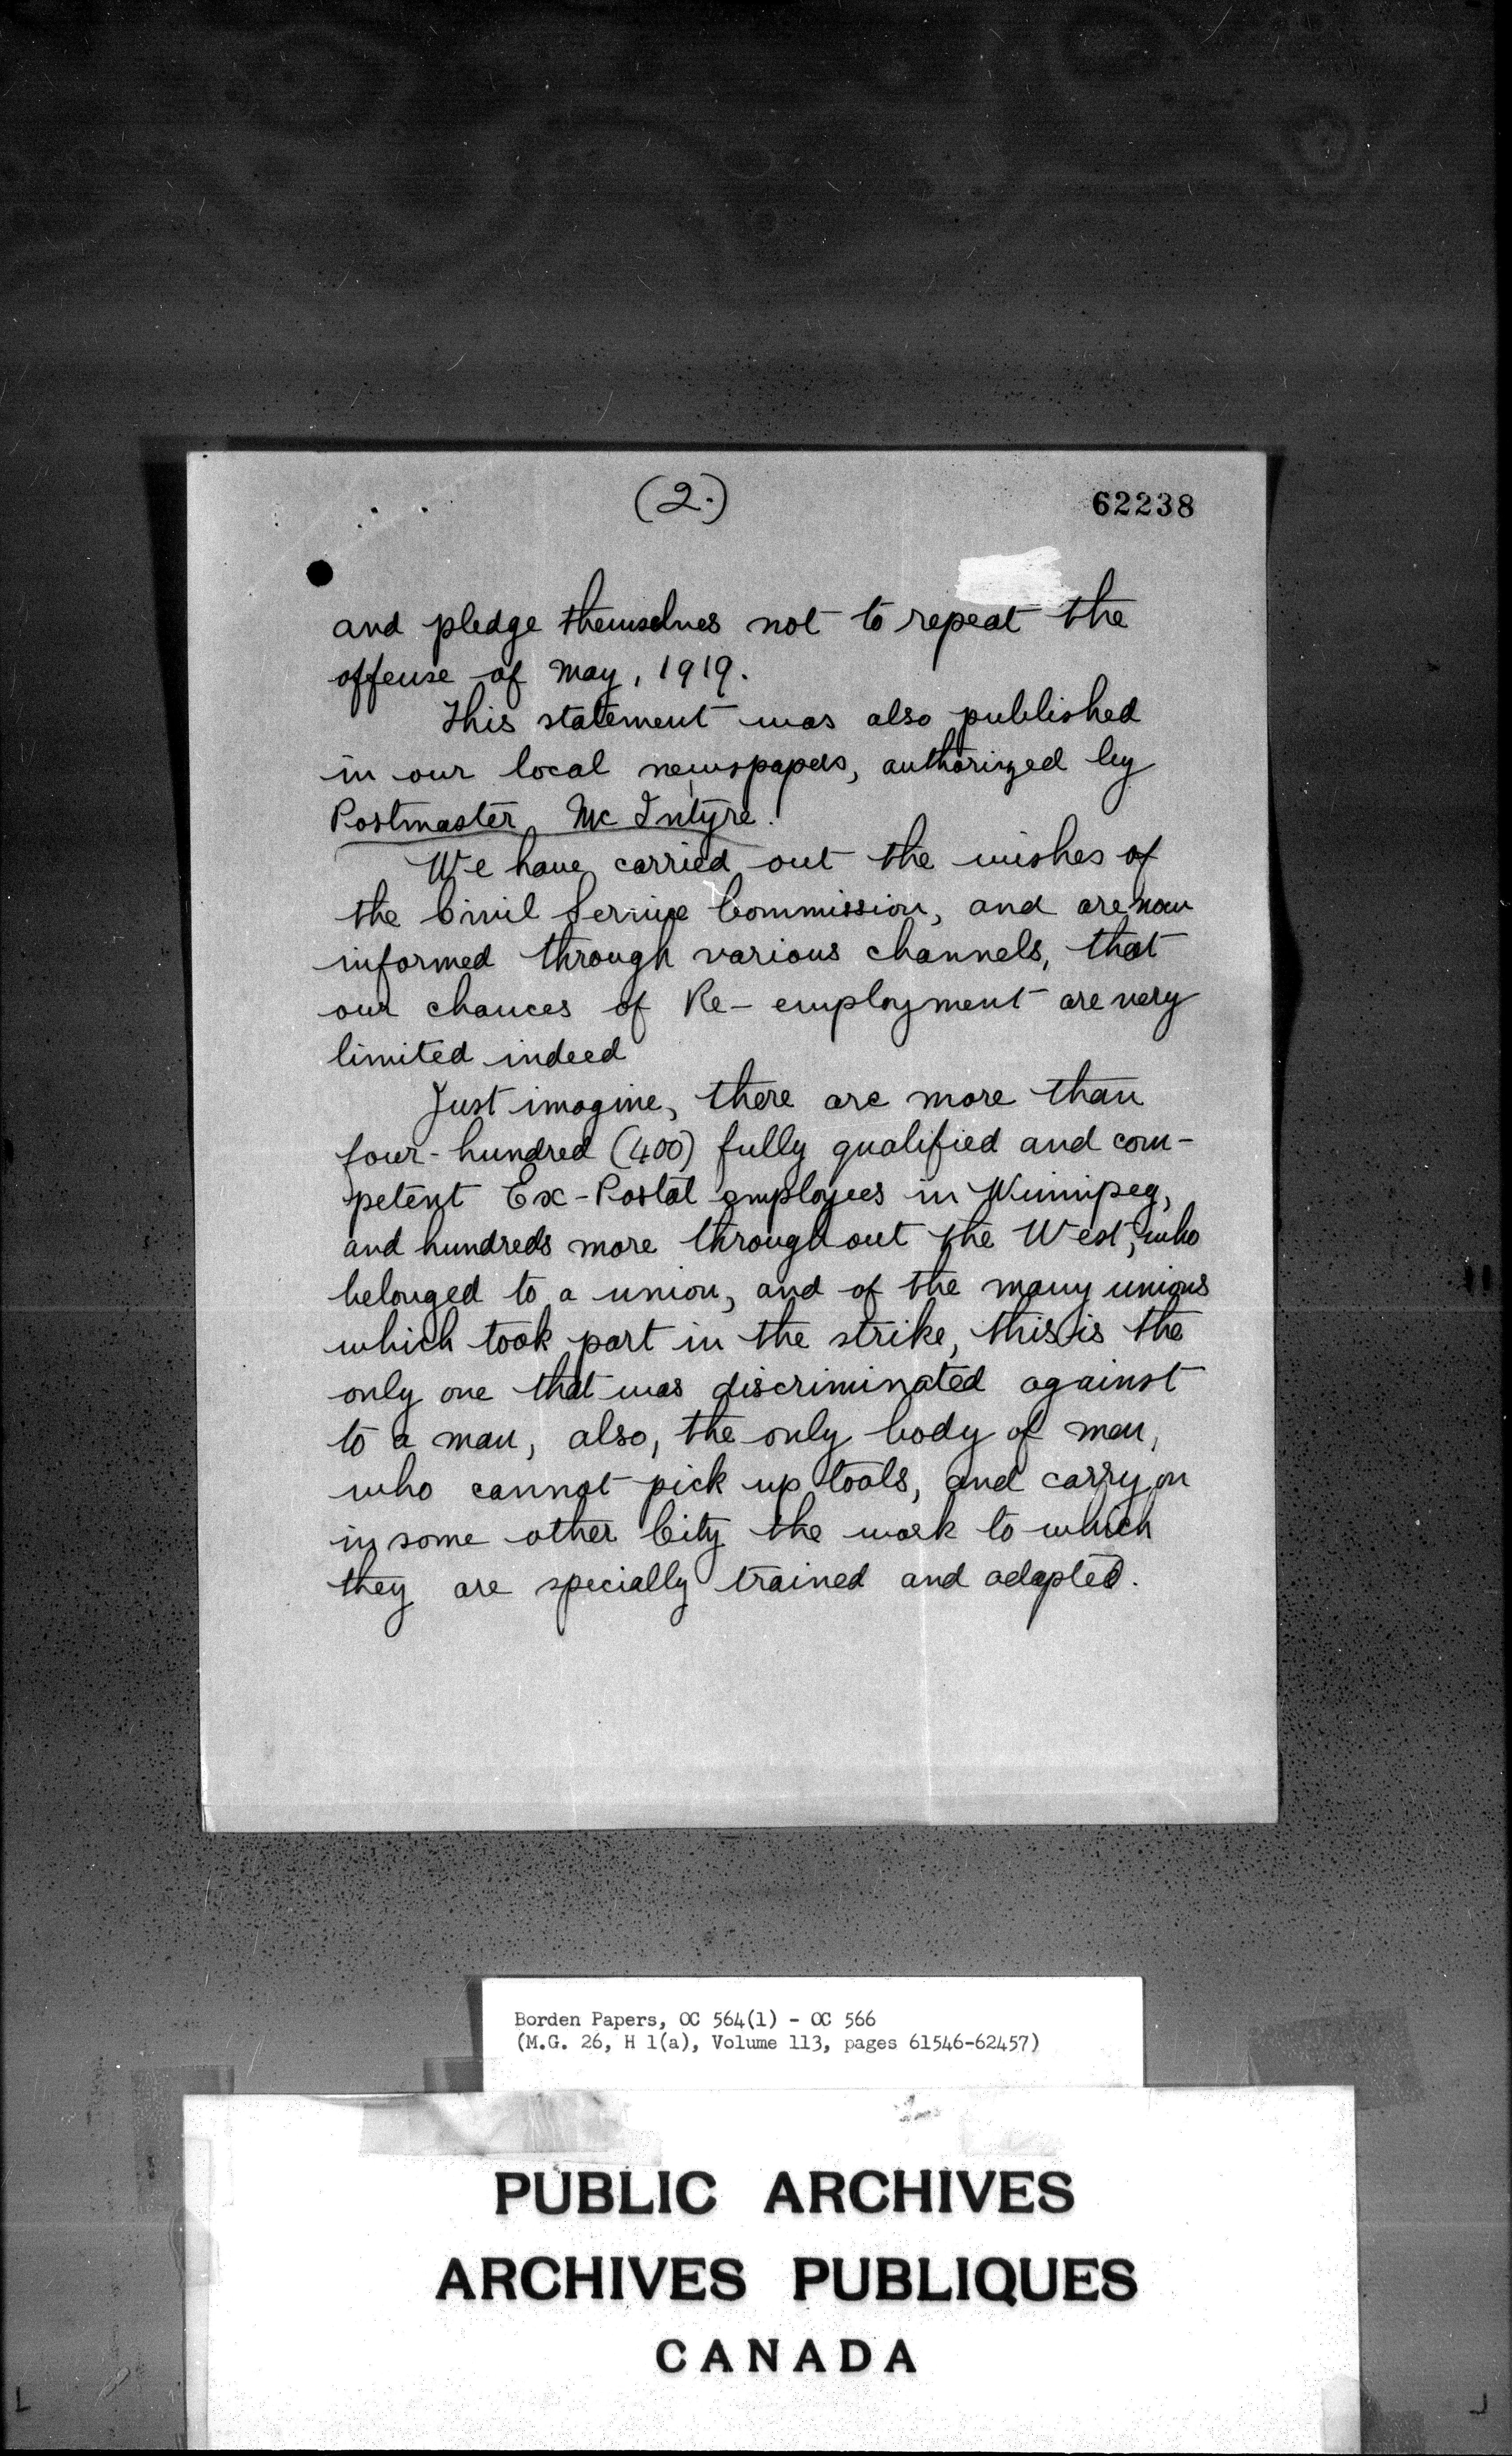 (2.)
62238
and pledge themselves not to repeat the
offense of May, 1919.
This statement was also published
in our local newspapers, authorized by
Postmaster Mc Intyre.
We have carried out the wishes of
the Civil Service Commission, and are now
informed through various channels, that
our chances of Re-employment are very
limited indeed
Just imagine, there are more than
four-hundred (400) fully qualified and com-
petent Ex-Postal employees in Winnipeg,
and hundreds more throughout the West, who
belonged to a union, and of the many unions
which took part in the strike, this is the
only one that was discriminated against
to a man, also, the only body of men,
who cannot pick up tools, and carry on
in some other City the work to which
they are specially trained and adapted.
Borden Papers, OC 564(1) - OC 566
(M.G. 26, H 1(a), Volume 113, pages 61546-62457)
PUBLIC ARCHIVES
ARCHIVES PUBLIQUES
CANADA